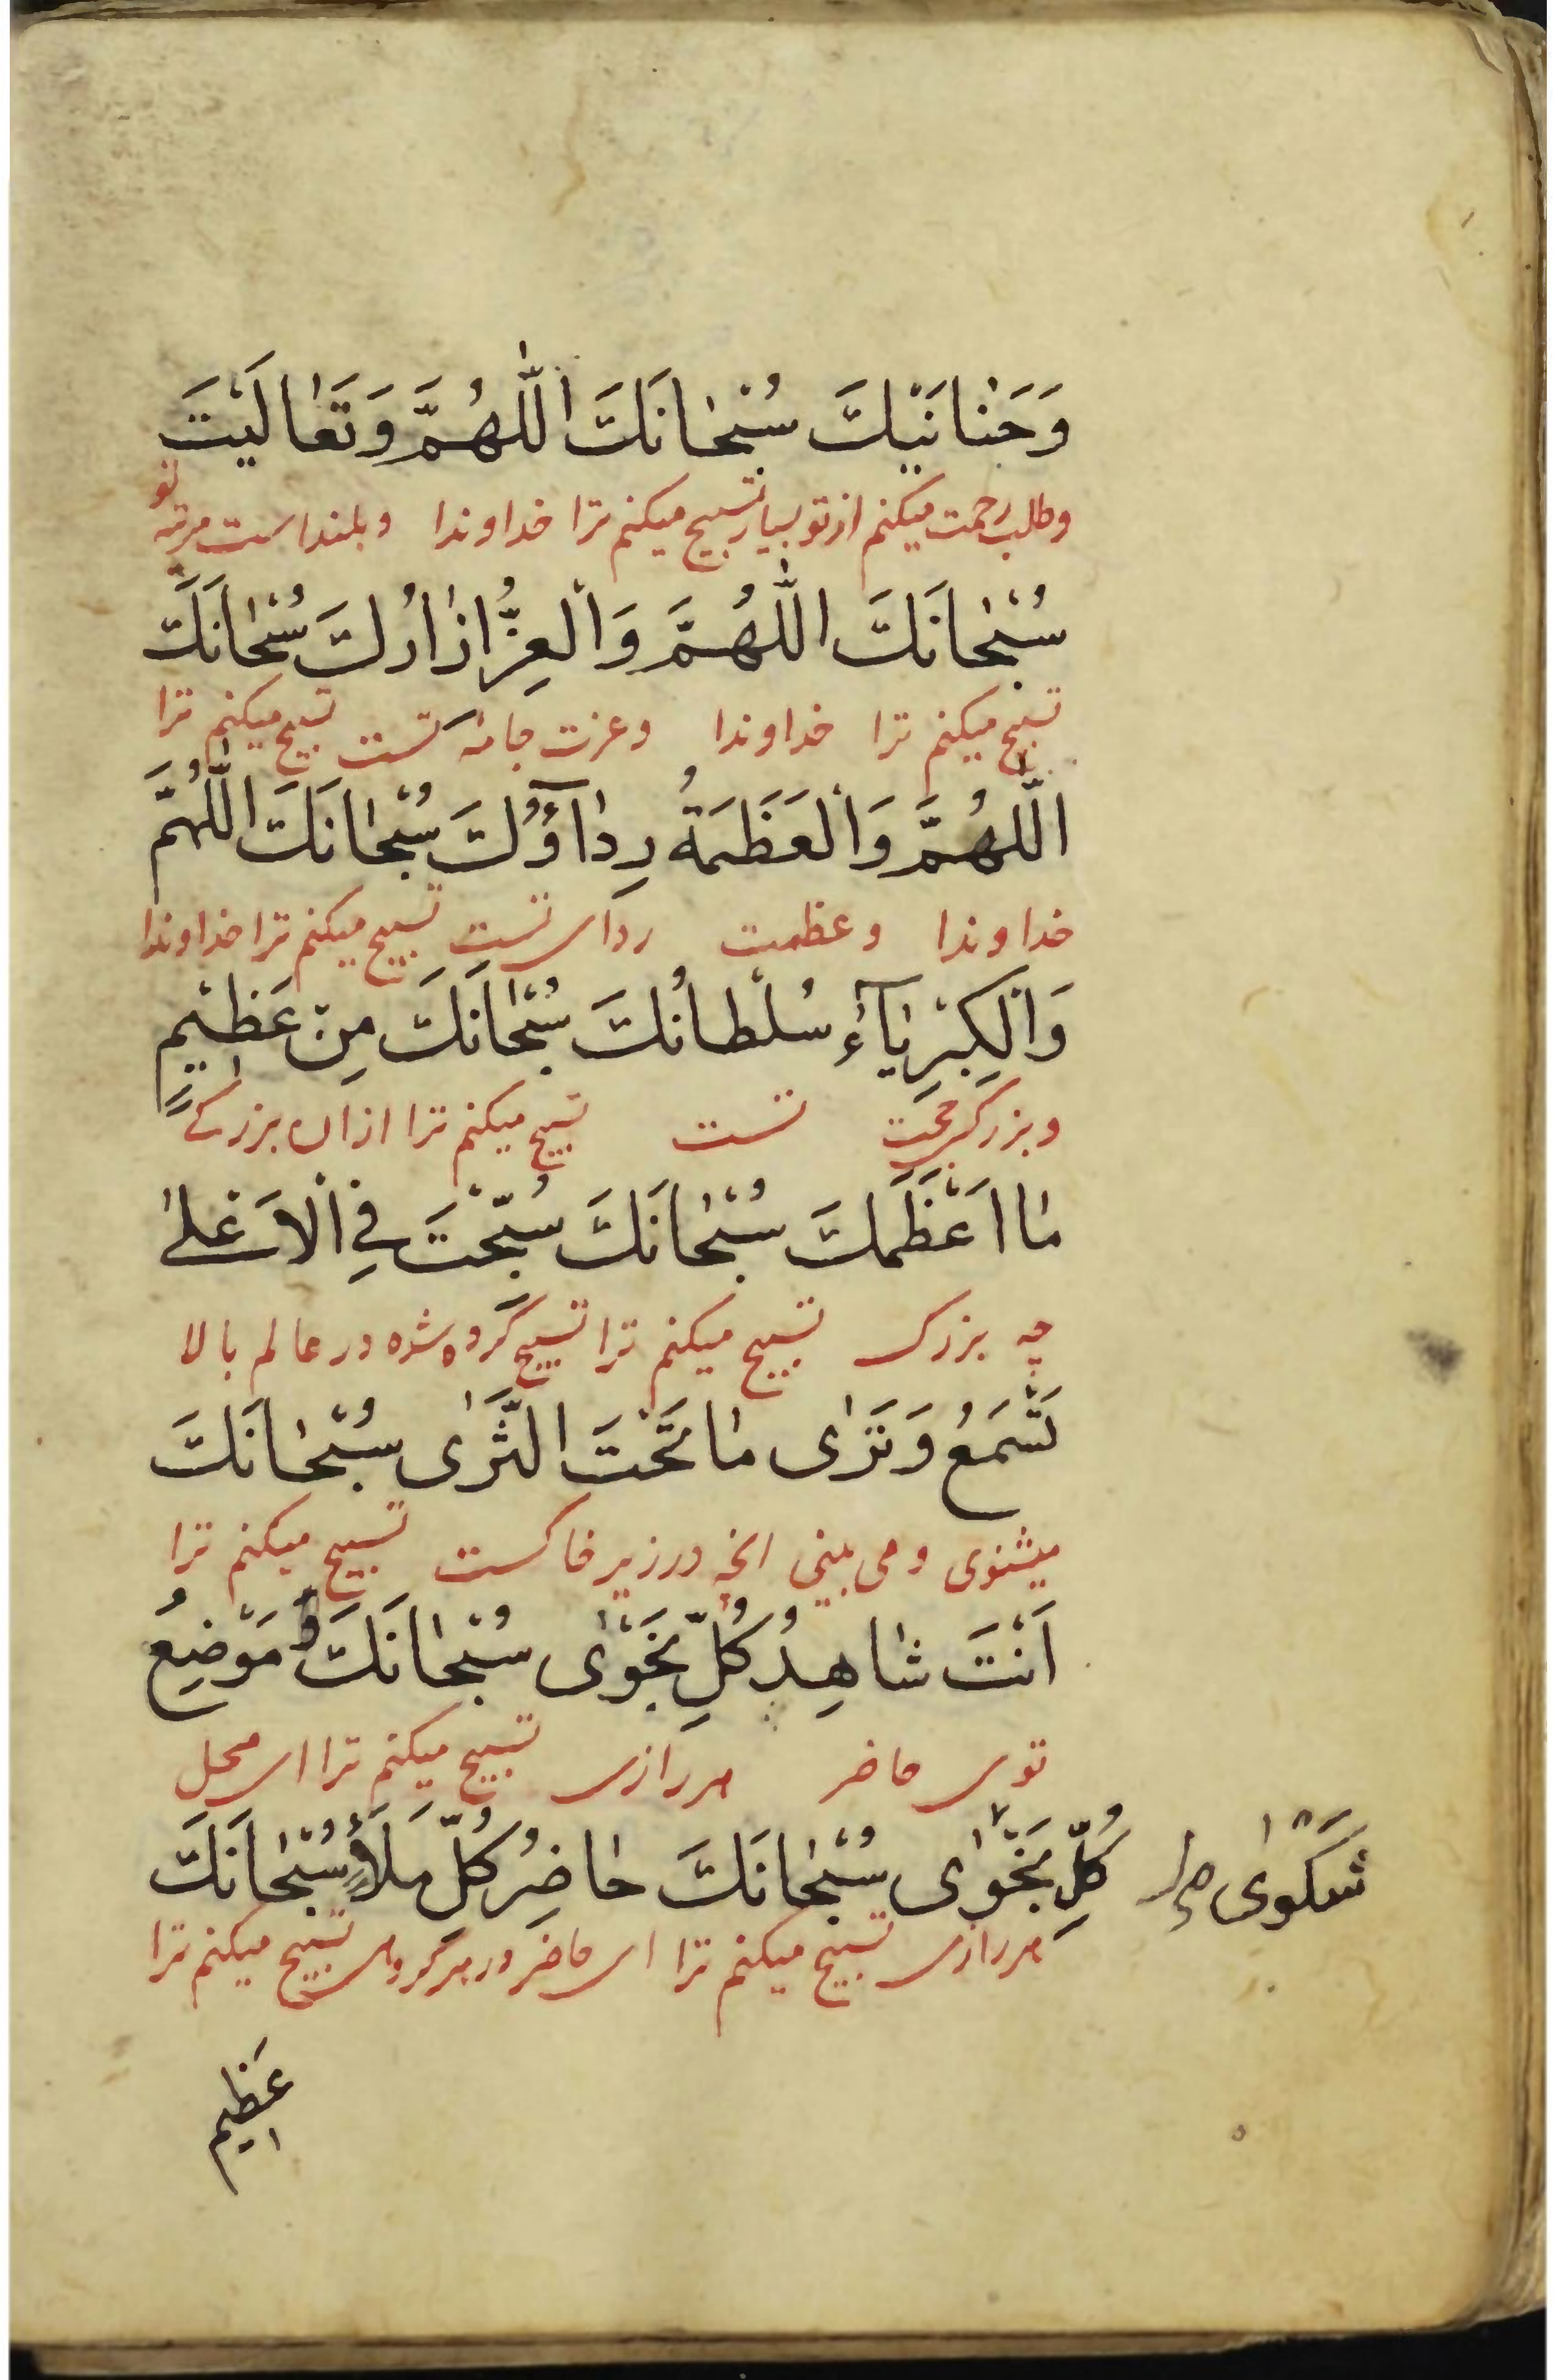 وَحَنانَيْكَ سُبْحانَكَ اللّٰهُمَّ وَتَعٰالَيْتَ
وطلب رحمت میکنم از تو بسیار تسبیح میکنم ترا خداوندا وبلند است مرتبه تو
سُبْحٰانَكَ اللّٰهُمَّ وَالْعِزُّ اِزٰارُكَ سُبْحٰانَكَ
تسبیح میکنم ترا خداوندا وعزت جامه تست تسبیح میکنم ترا
اللّٰهُمَّ وَالْعَظَمَةُ رِدٰآؤُكَ سُبْحٰانَكَ اللّٰهُمَّ
خداوندا وعظمت ردای تست تسبیح میکنم ترا خداوندا
وَالْكِبْرِيٰآءُ سُلْطانُكَ سُبْحٰانَكَ مِنْ عَظٖيْمٍ
وبزرکی حجت تست تسبیح میکنم ترا از ان بزرکے
مٰا اَعْظَمَكَ سُبْحٰانَكَ سُبِّحْتَ فِي الْاَعْلىٰ
چه بزرک تسبیح میکنم ترا تسبیح کرده شده در عالم بالا
تَسْمَعُ وَتَرٰى مٰا تَحْتَ الثَّرٰى سُبْحٰانَكَ
میشنوی و می بینی انچه در زیر خاکست تسبیح میکنم ترا
اَنْتَ شٰاهِدُ كُلِّ نَجْوٰى سُبْحٰانَكَ مَوْضِعُ
توی حاضر هر رازی تسبیح میکنم ترا ای محل
كُلِّ نَجْوٰى سُبْحٰانَكَ حٰاضِرُ كُلِّ مَلَأٍ سُبْحٰانَكَ
شَكْوٰى
هر رازی تسبیح میکنم ترا ای حاضر در هر کروهی تسبیح میکنم ترا
عَظٖيم